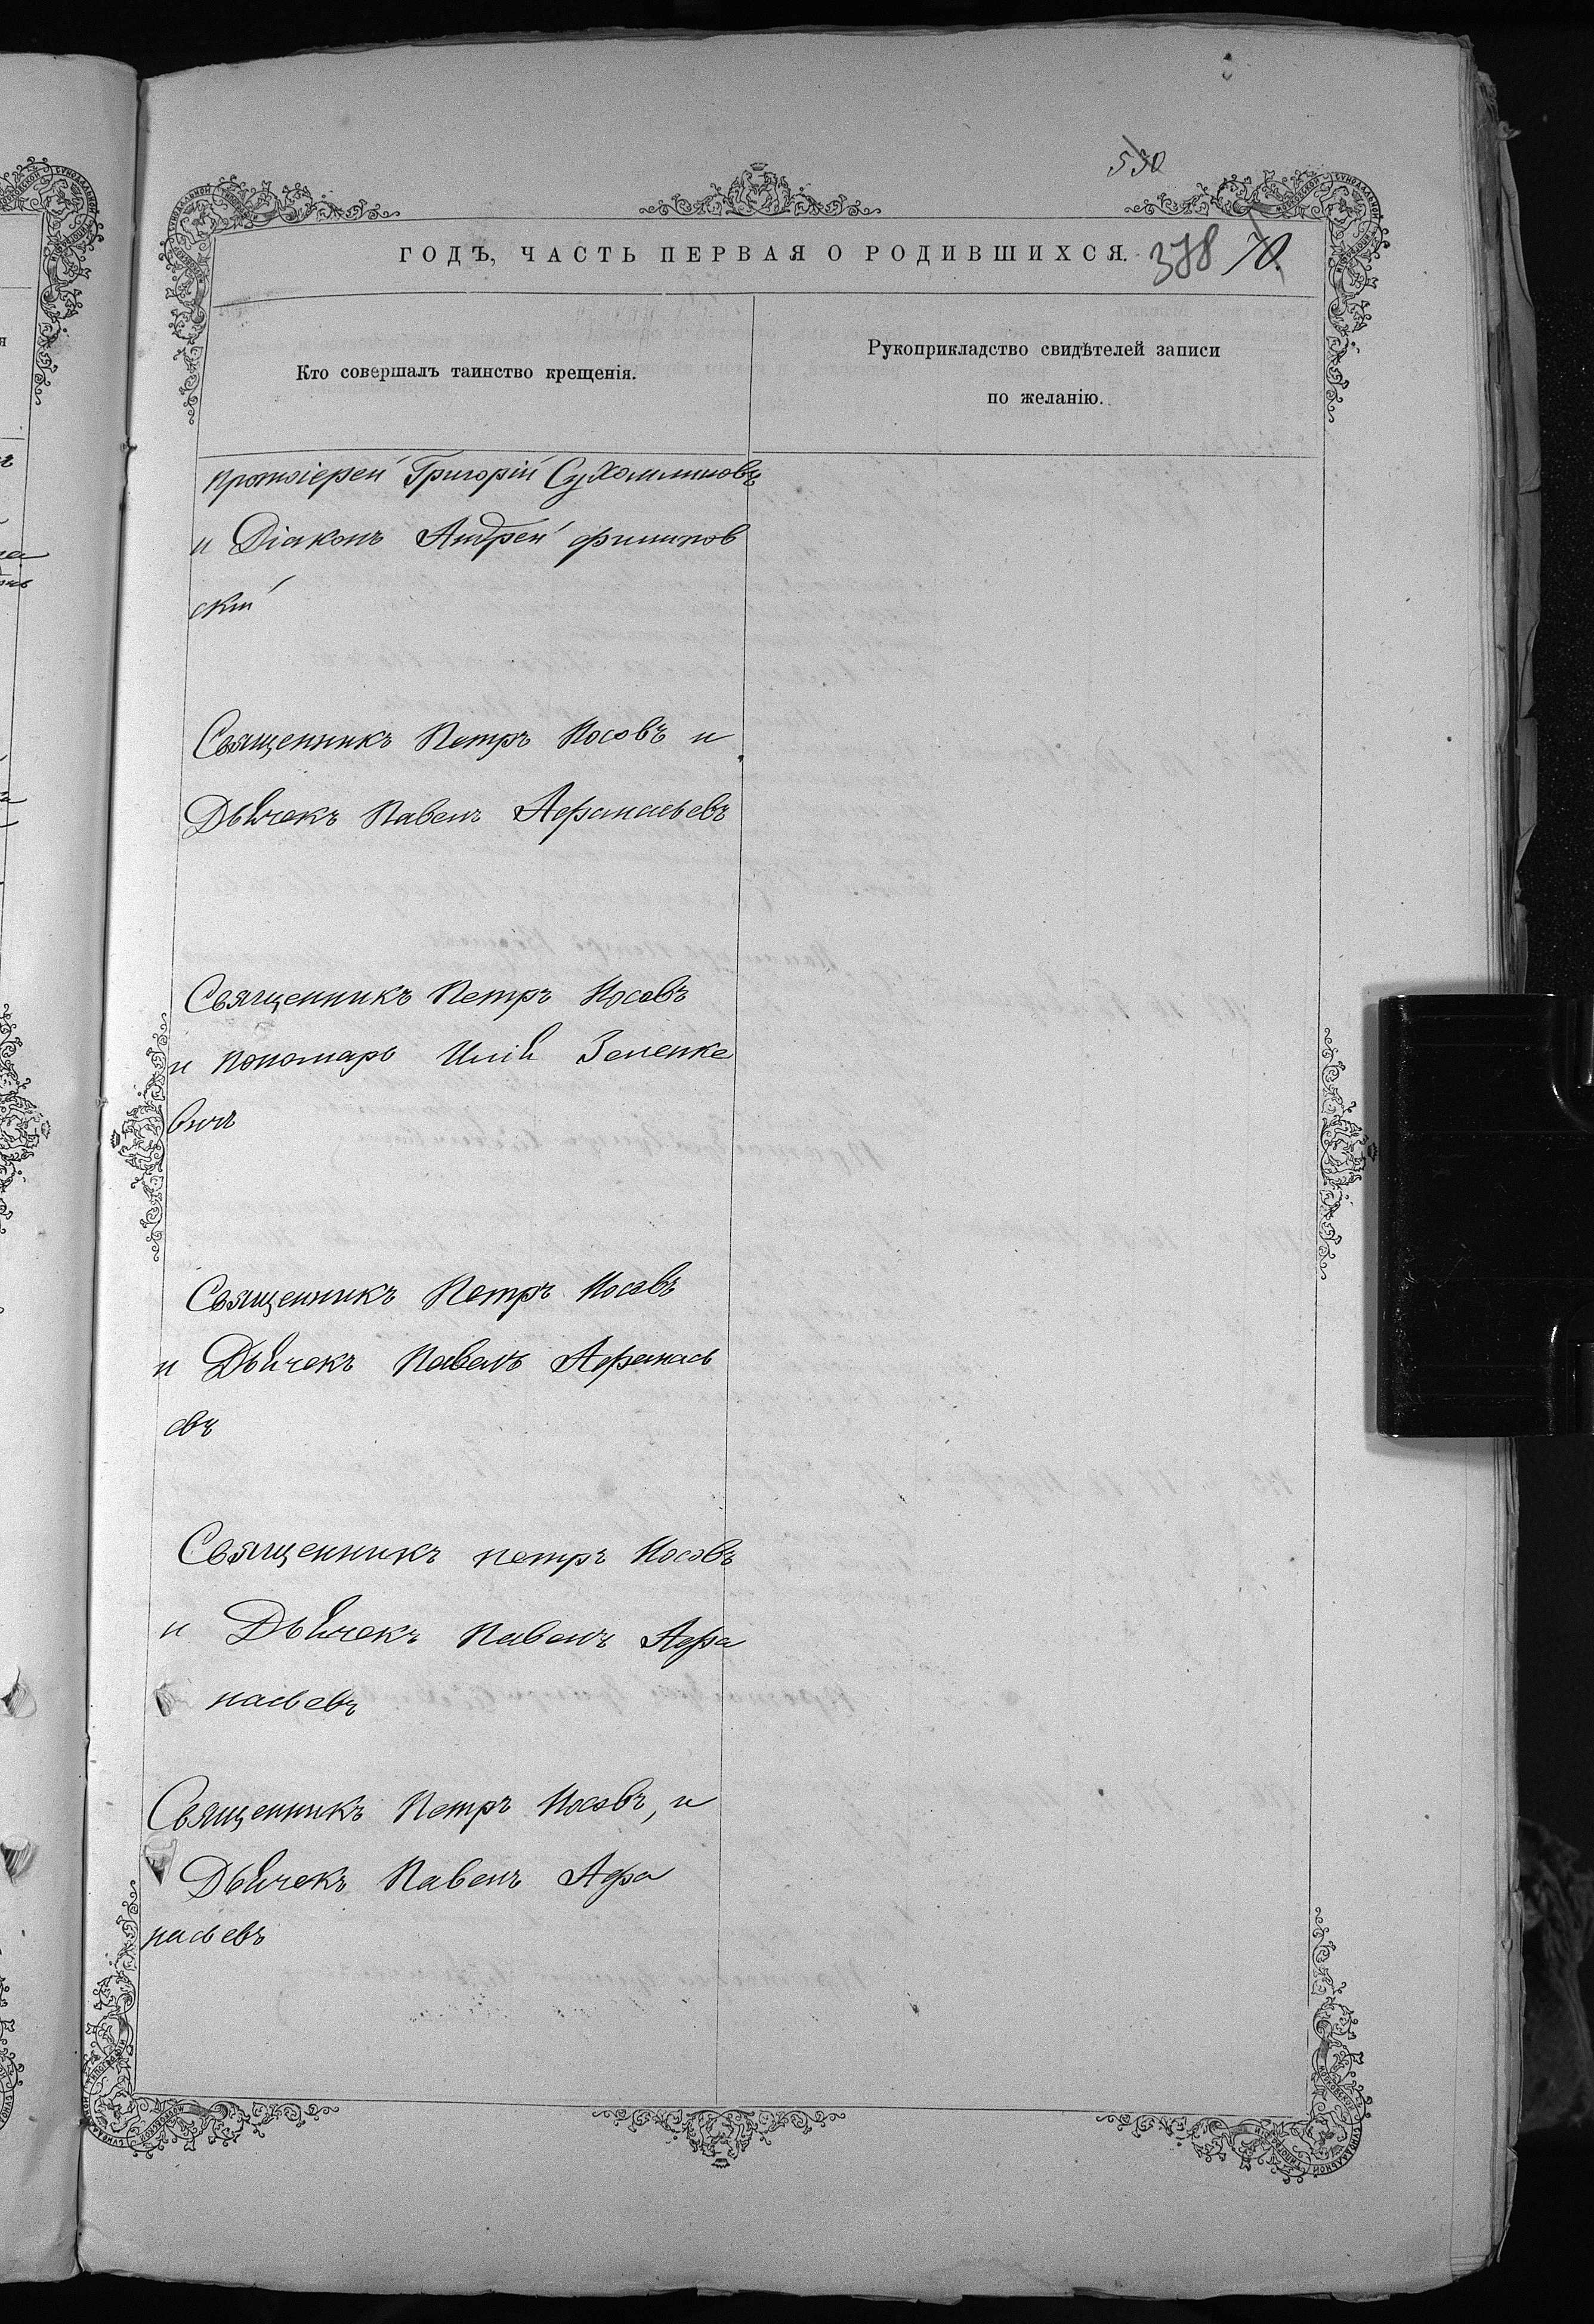 530
ГОДЪ, ЧАСТЬ ПЕРВАЯ О РОДИВШИХСЯ.
378 70.
Кто совершалъ таинство крещенія.
Рукоприкладство свидѣтелей записи
по желанію.
Протоіерей Григорій Сухомлиновъ
и Діаконъ Андрей Филипов
скій
Священникъ Петръ Носовъ и
Дьячекъ Павелъ Афанасьевъ
Священникъ Петръ Носовъ
и Пономарь Илія Зеленке
вичъ
Священникъ Петръ Носовъ
и Дьячекъ Павелъ Афанась
евъ
Священникъ петръ Носовъ
и Дьячекъ Павелъ Афа
насьевъ
Священникъ Петръ Носовъ, и
Дьячекъ Павелъ Афа
насьевъ